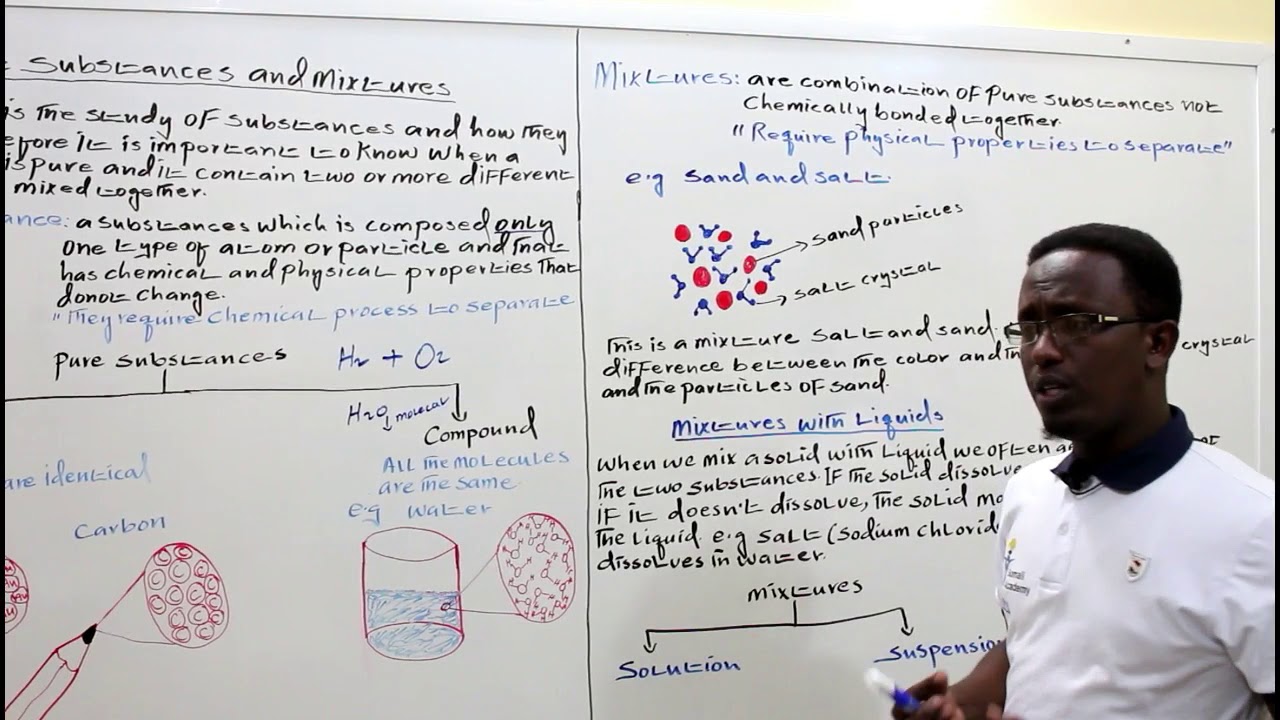 Substances and Mixtures
is the study of substances and how they
efore it is important to know when a
is pure and it contain two or more different
mixed together.
ance: a substances which is composed only
one type of atom or particle and that
has chemical and physical properties that
donot change.
"They require chemical process to separate
Pure substances
H2 + O2
H2O
molecar
Compound
are identical
All the molecules
are the same
e.g water
Carbon
Mixtures: are combination of pure substances not
chemically bonded together.
"Require physical properties to separate"
e.g sand and salt.
sand particles
salt crystal
This is a mixture salt and sand.
difference between the color and th
crystal
and the particles of sand.
Mixtures with Liquids
When we mix a solid with liquid we often
of
The two substances. If the solid dissolve
if it doesn't dissolve, the solid
the liquid. e.g salt (sodium chlorid
dissolves in water.
mixtures
Solution
Suspensio